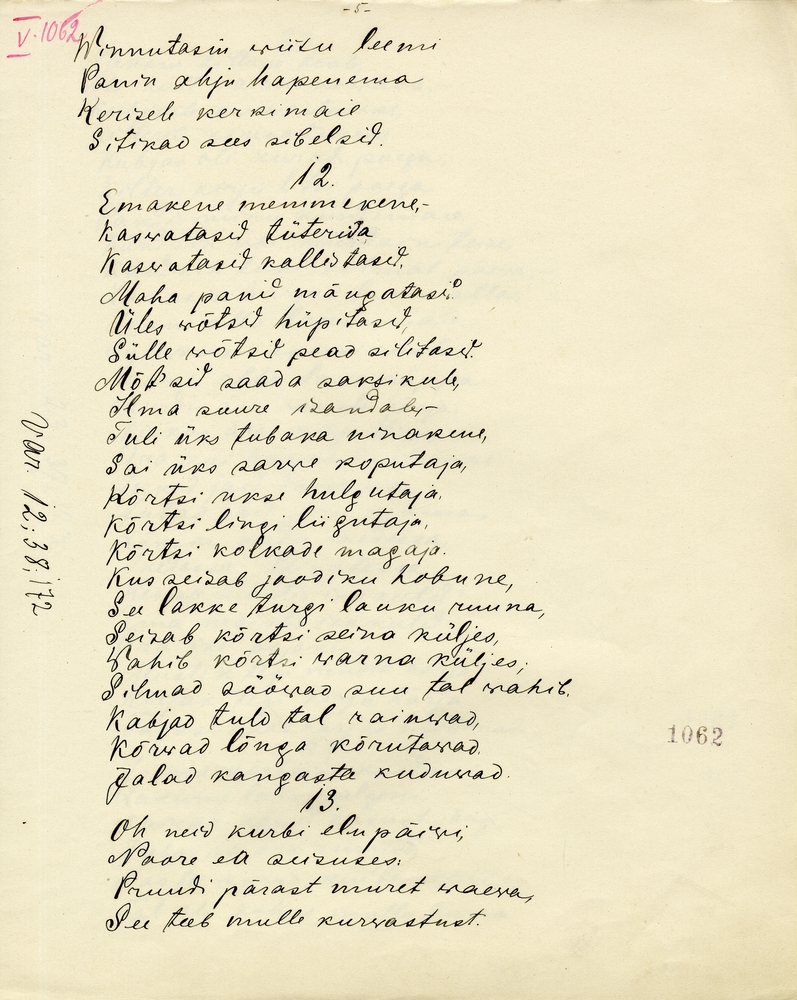 -5-
V. 1062
Winnutasin wiisu leemi
Panin ahju hapenema
Kerisele kerkimaie
Sitikad sees sibelsid.
12.
Emakene memmekene,-
Kaswatasid tüterida
Kaswatasid kallistasid.
Maha panid mängatasid.
Üles wõtsid hüpitasid,
Sülle wõtsid pead silitasid.
Mõtsid saada saksikule,
Ilma suure isandale,-
Tuli üks tubaka ninakene,
Sai üks sarwe koputaja,
Kõrtsi ukse hulgutaja.
Kõrtsi lingi liigutaja,
Kõrtsi kolkade magaja.
Kus seisab joodiku hobune,
See lakke turgi lauku ruuna,
Seisab kõrtsi seina küljes,
Wahib kõrtsi warna küljes;
Silmad sööwad suu tal wahib.
Kabjad tuld tal raiuwad,
Kõrwad lõnga kõrutawad.
Jalad kangasta kuduwad.
13.
Oh neid kurbi elupäiwi,
Noore ea seisuses.
Pruudi pärast muret waewa,
See teeb mulle kurwastust.
Var. 12; 38; 172
1062